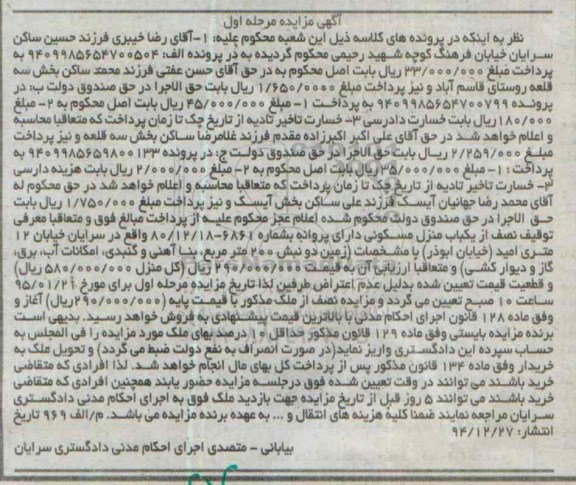 آگهی مزایده مرحله اول
نظر به اینکه در پرونده های کلاسه ذیل این شعبه محکوم علیه: ۱-آقای رضا خیبری فرزند حسین ساکن
سرایان خیابان فرهنگ کوچه شهید رحیمی محکوم گردیده به در پرونده الف: ۹۴۰۹۹۸۵۶۵۴۷۰۰۵۰۴ به
پرداخت مبلغ ۳۳/۰۰۰/۰۰۰ ریال بابت اصل محکوم به در حق آقای حسن عفتی فرزند محمد ساکن بخش سه
قلعه روستای قاسم آباد و نیز پرداخت مبلغ ۱/۶۵۰/۰۰۰۰ ریال بابت حق الاجرا در حق صندوق دولت ب: در
پرونده ۹۴۰۹۹۸۵۶۵۴۷۰۰۷۹۹ به پرداخت ۱- مبلغ ۴۵/۰۰۰/۰۰۰ ریال بابت اصل محکوم به ۲- مبلغ
۱۸۰/۰۰۰ریال بابت خسارت دادرسی ۳- خسارت تاخیر تادیه از تاریخ چک تا زمان پرداخت که متعاقبا محاسبه
و اعلام خواهد شد در حق آقای علی اکبر اکبرزاده مقدم فرزند غلامرضا ساکن بخش سه قلعه و نیز پرداخت
مبلغ ۲/۲۵۹/۰۰۰ ریال بابت حق الاجرا در حق صندوق دولت ج: در پرونده ۹۴۰۹۹۸۵۶۵۹۸۰۰۱۳۳ به
پرداخت: ۱- مبلغ ۳۵/۰۰۰/۰۰۰ریال بابت اصل محکوم به ۲-مبلغ ۲/۰۰۰/۰۰۰ ریال بابت هزینه دارسی
۳- خسارت تاخیر تادیه از تاریخ چک تا زمان پرداخت که متعاقبا محاسبه و اعلام خواهد شد در حق محکوم له
آقای محمد رضا جهانیان آیسک فرزند علی ساکن بخش آیسک و نیز پرداخت مبلغ ۱/۷۵۰/۰۰۰ ریال بابت
حق الاجرا در حق صندوق دولت محکوم شده اعلام عجز محکوم علیه از پرداخت مبالغ فوق و متعاقبا معرفی
توقیف نصف از یکباب منزل مسکونی دارای پروانه بشماره ۶۸۶۱-۸۰/۱۲/۱۸ واقع در سرایان خیابان ۱۲
متری امید (خیابان ابوذر) با مشخصات (زمین دو نبش ۲۰۰ متر مربع بنا آهنی و گنبدی، امکانات آب، برق،
گاز و دیوار کشی) و متعاقبا ارزیابی آن به قیمت ۲۹۰/۰۰۰/۰۰۰ ریال (کل منزل ۵۸۰/۰۰۰/۰۰۰ ریال)
و قطعیت قیمت تعیین شده بدلیل عدم اعتراض طرفین لذا تاریخ مزایده مرحله اول برای مورخ ۹۵/۰۱/۲۱
ساعت ۱۰ صبح تعیین می گردد و مزایده نصف از ملک مذکور با قیمت پایه (۲۹۰/۰۰۰/۰۰۰ریال) آغاز و
وفق ماده ۱۲۸ قانون اجرای احکام مدنی با بالاترین قیمت پیشنهادی به فروش خواهد رسید. بدیهی است
برنده مزایده بایستی وفق ماده ۱۲۹ قانون مذکور حداقل ۱۰ درصد بهای ملک مورد مزایده را فی المجلس به
حساب سپرده این دادگستری واریز نماید(در صورت انصراف به نفع دولت ضبط می گردد) و تحویل ملک به
خریدار وفق ماده ۱۳۴ قانون مذکور پس از پرداخت کل بهای مال انجام خواهد شد. لذا افرادی که متقاضی
خرید باشند می توانند در وقت تعیین شده فوق درجلسه مزایده حضور یابند همچنین افرادی که متقاضی
خرید باشند می توانند ۵ روز قبل از تاریخ مزایده جهت بازدید ملک فوق به اجرای احکام مدنی دادگستری
سرایان مراجعه نمایند ضمنا کلیه هزینه های انتقال و ... به عهده برنده مزایده می باشد. م/الف ۹۶۹ تاریخ
انتشار: ۹۴/۱۲/۲۷
بیابانی - متصدی اجرای احکام مدنی دادگستری سرایان